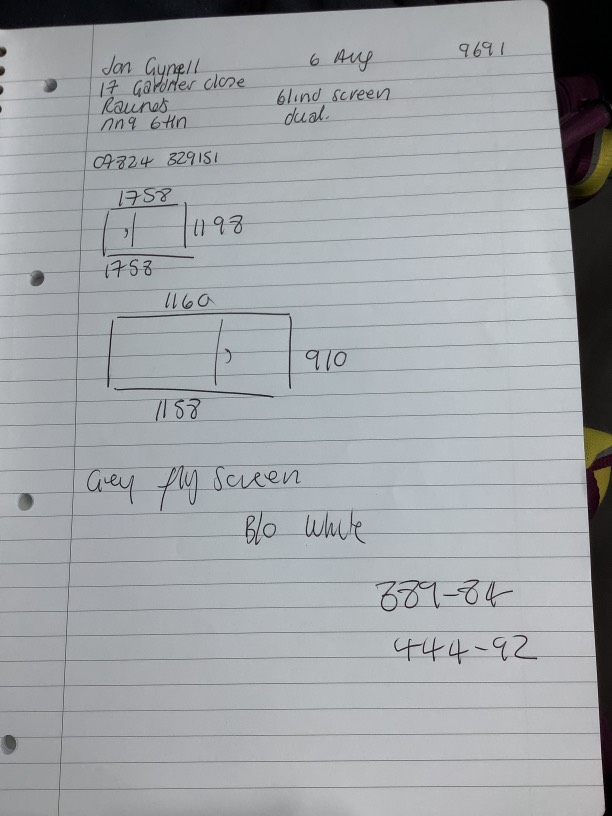 Jon Gynell 6 Aug 9691
17 Gardner close
Raunds blind screen
nn9 6Hn dual.
07824 329151
1758
1198
1758
1160
910
1158
Grey fly screen
B/O White
389-84
444-92